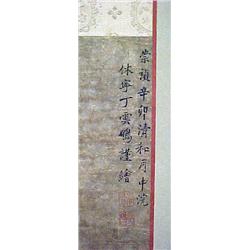 崇禎辛卯清和月中浣
休寧丁雲鵬謹繪